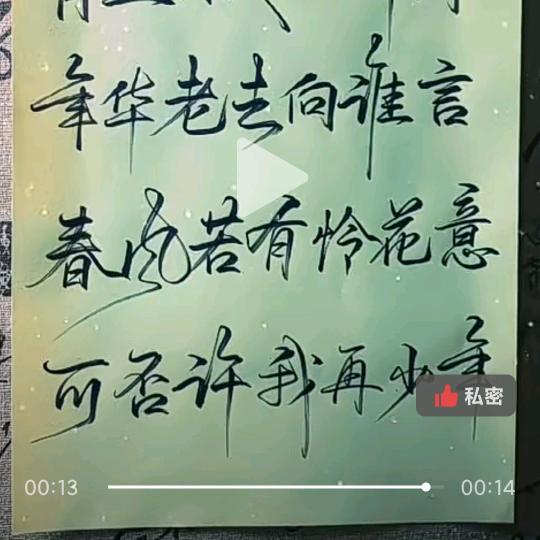 年华老去向谁言
春风若有怜花意
可否许我再少年
私密
00:13
00:14